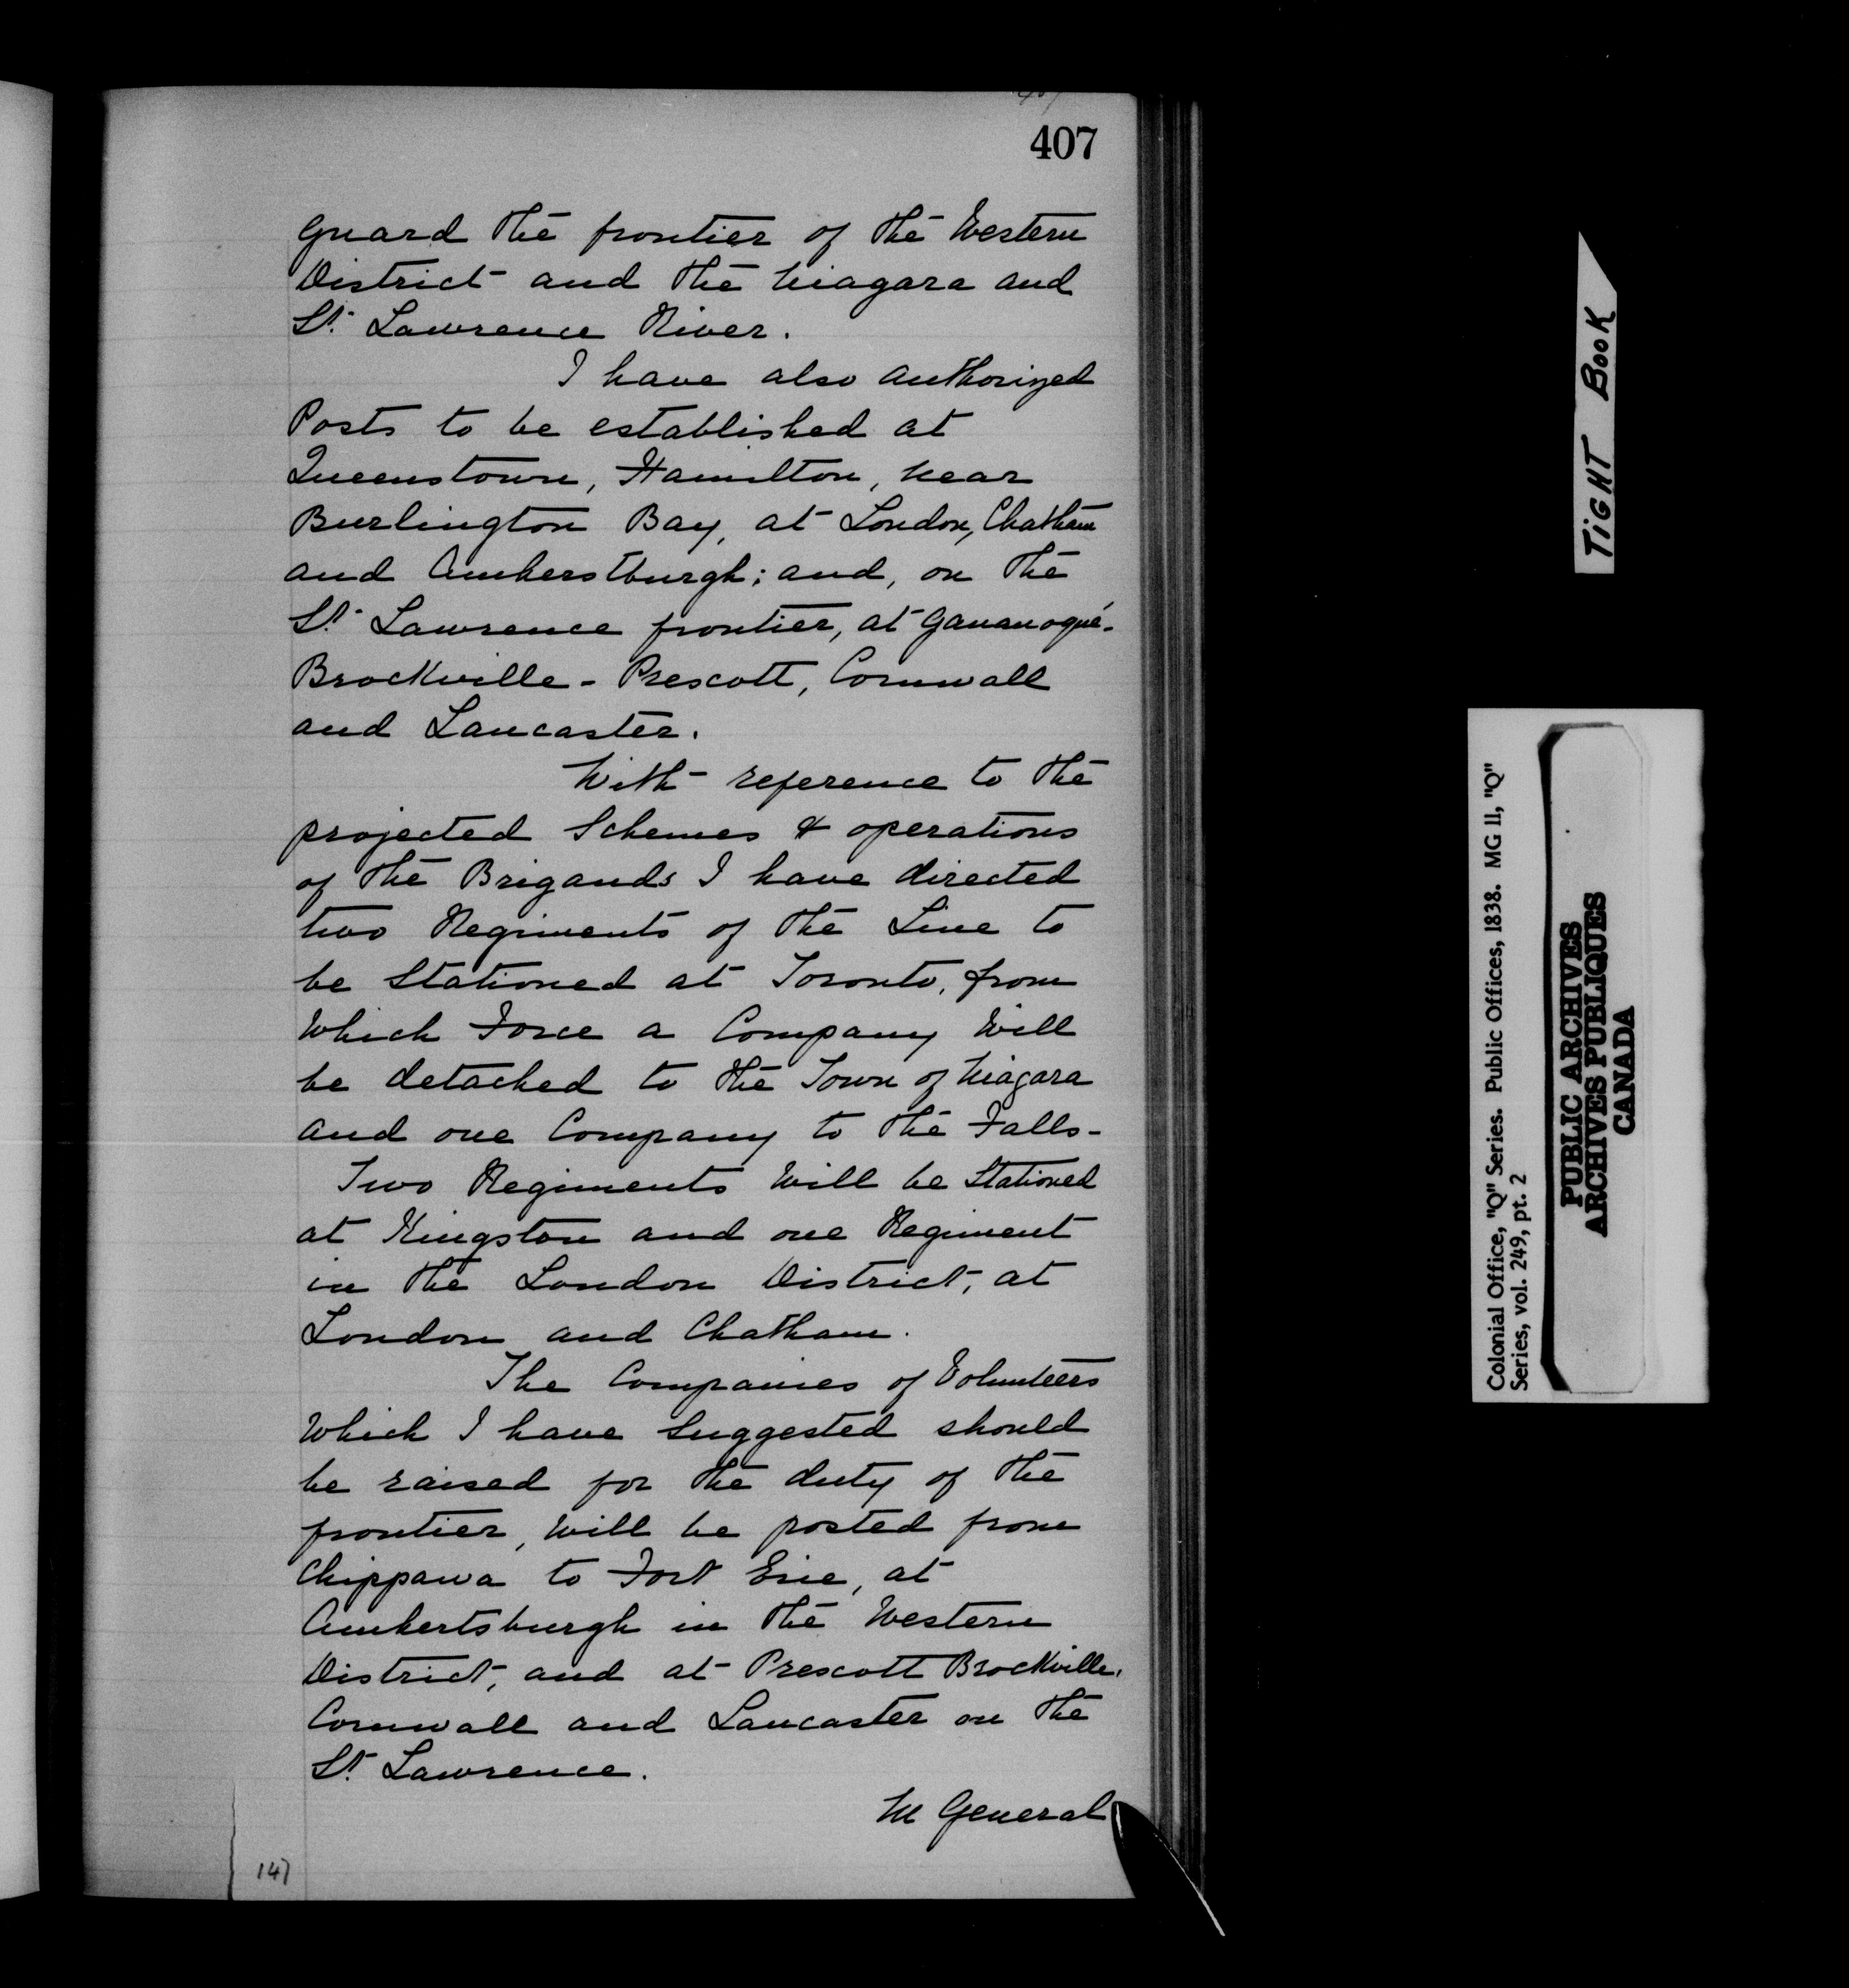 407
guard the frontier of the Western
District and the Niagara and
St. Lawrence River.
I have also authorized
Posts to be established at
Queenstown, Hamilton, near
Burlington Bay, at London, Chatham
and Amherstburgh; and, on the
St. Lawrence frontier, at Gananoqué-
Brockville - Prescott, Cornwall
and Lancaster.
With reference to the
projected Schemes & operations
of the Brigands I have directed
two Regiments of the Line to
be Stationed at Toronto, from
which Force a Company will
be detached to the Town of Niagara
and one Company to the Falls-
Two Regiments will be Stationed
at Kingston and one Regiment
in the London District, at
London and Chatham.
The Companies of Volunteers
which I have suggested should
be raised for the duty of the
frontier, will be posted from
Chippawa to Fort Erie, at
Amhertsburgh in the Western
District, and at Prescott Brockville,
Cornwall and Lancaster on the
St. Lawrence.
M General
147
TIGHT BOOK
Colonial Office, "Q" Series. Public Offices, 1838. MG 11, "Q"
Series, vol. 249, pt. 2
PUBLIC ARCHIVES
ARCHIVES PUBLIQUES
CANADA